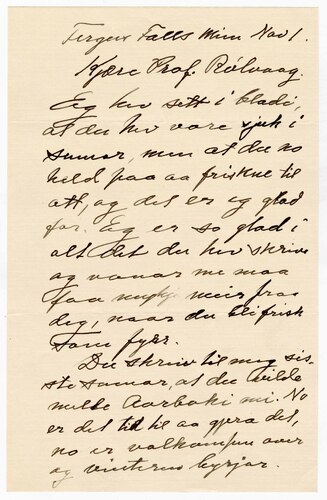 Fergus Falls Minn Nov 1.
Kjære Prof. Rölvaag.
Eg hev sett i bladi,
at du hev vore sjuk i
sumar, men at du no
held paa aa friskne til
att, og det er eg glad
for. Eg er so glad i
alt det du hev skrive
og vonar me maa
faa mykje meir fraa
deg, naar du bli frisk
som fyrr.
Du skreiv til meg sis-
ste sumar, at du vilde
melde Aarboki mi. No
er det tid til aa gjøra det,
no er valkampen over
og vinteren byrjar.